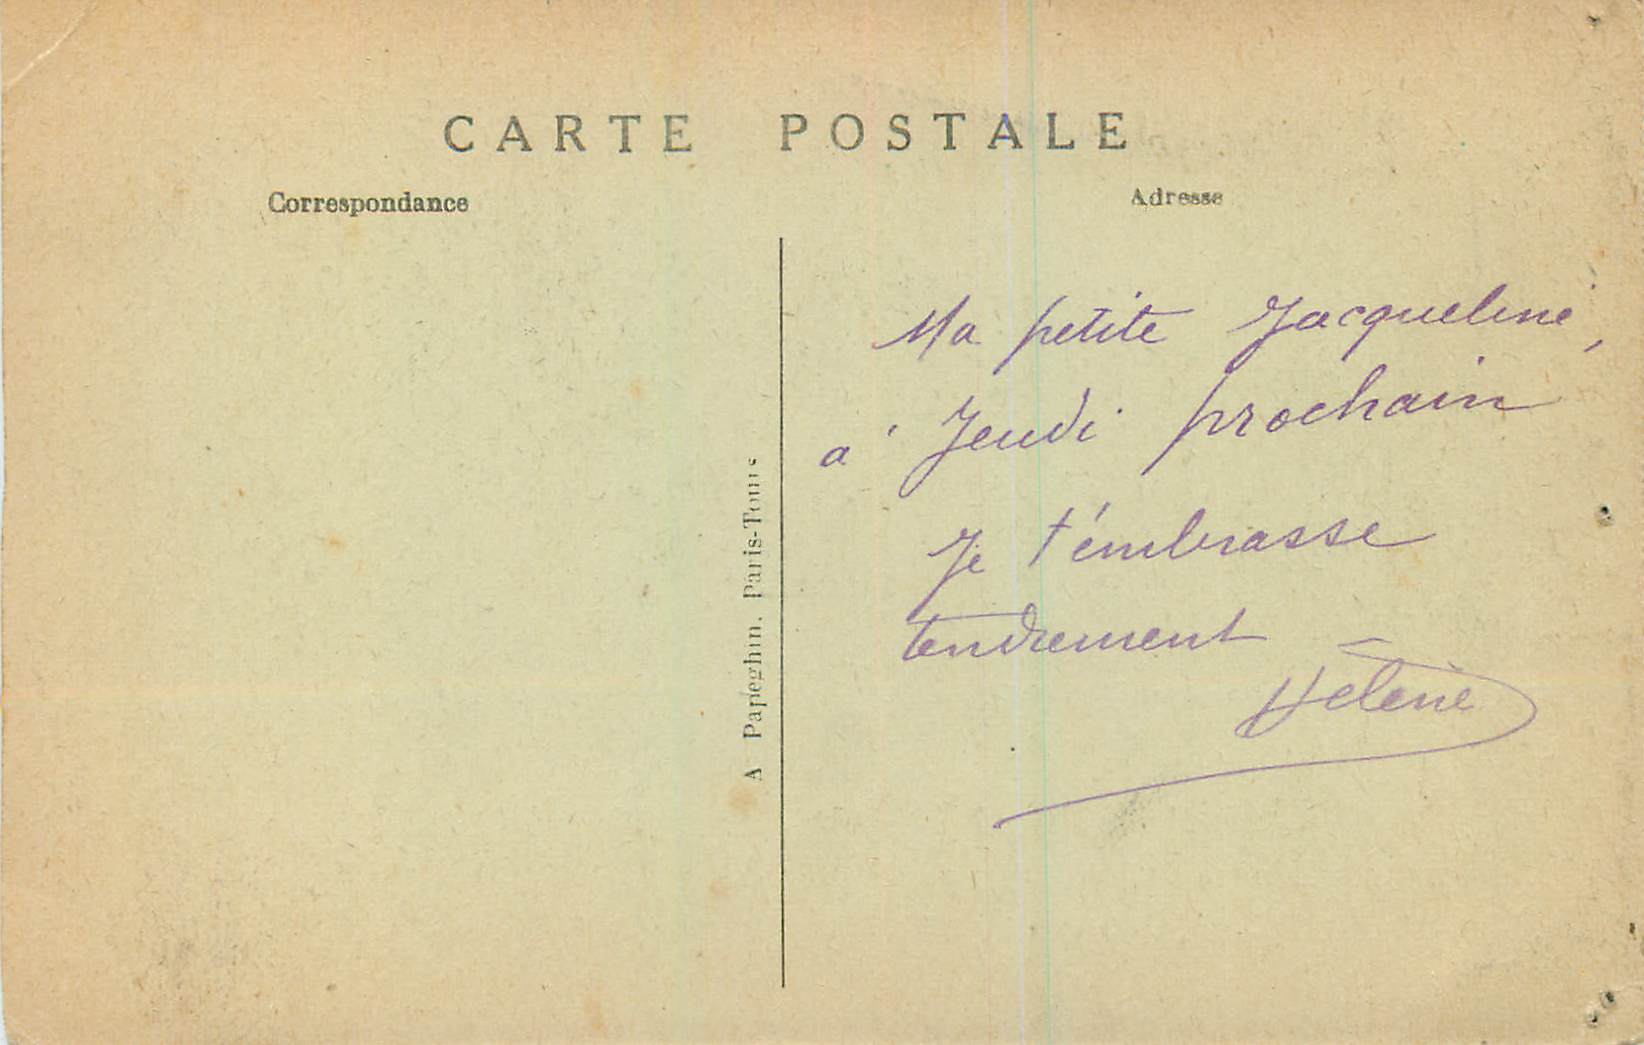 CARTE POSTALE
Correspondance
Adresse
A Papeghin. Paris-Tours
Ma petite Jacqueline,
a' Jeudi prochain
Je t'embrasse
tendrement
Hélène